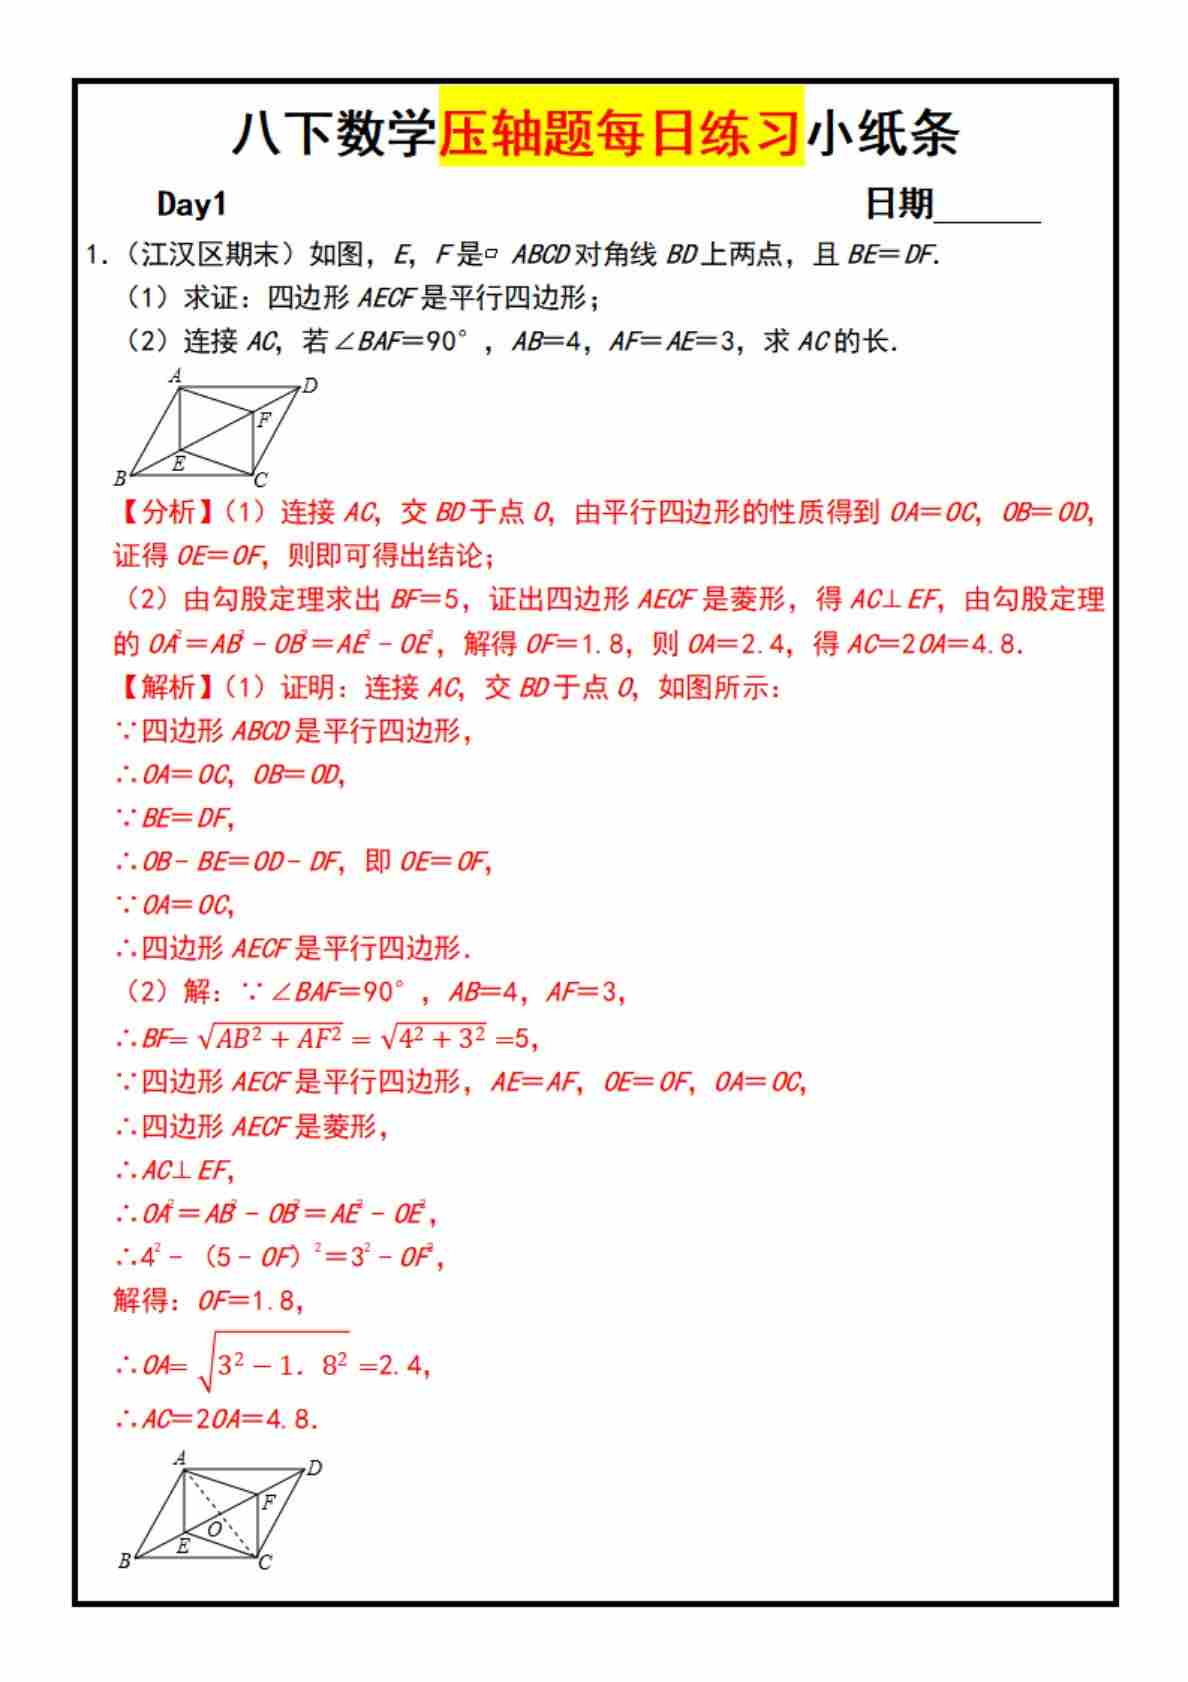 八下数学压轴题每日练习小纸条
Day1 日期______
1.（江汉区期末）如图，E，F 是▱ ABCD 对角线 BD 上两点，且 BE＝DF．
（1）求证：四边形 AECF 是平行四边形；
（2）连接 AC，若∠BAF＝90°，AB＝4，AF＝AE＝3，求 AC 的长．
A
D
F
E
B
C
【分析】（1）连接 AC，交 BD 于点 O，由平行四边形的性质得到 OA＝OC，OB＝OD，
证得 OE＝OF，则即可得出结论；
（2）由勾股定理求出 BF＝5，证出四边形 AECF 是菱形，得 AC⊥EF，由勾股定理
的 OA²＝AB²﹣OB²＝AE²﹣OE²，解得 OF＝1.8，则 OA＝2.4，得 AC＝2OA＝4.8．
【解析】（1）证明：连接 AC，交 BD 于点 O，如图所示：
∵四边形 ABCD 是平行四边形，
∴OA＝OC，OB＝OD，
∵BE＝DF，
∴OB﹣BE＝OD﹣DF，即 OE＝OF，
∵OA＝OC，
∴四边形 AECF 是平行四边形．
（2）解：∵∠BAF＝90°，AB＝4，AF＝3，
∴BF= √(AB² + AF²) = √(4² + 3²) =5，
∵四边形 AECF 是平行四边形，AE＝AF，OE＝OF，OA＝OC，
∴四边形 AECF 是菱形，
∴AC⊥EF，
∴OA²＝AB²﹣OB²＝AE²﹣OE²，
∴4²﹣（5﹣OF）²＝3²﹣OF²，
解得：OF＝1.8，
∴OA= √(3² − 1．8²) =2.4，
∴AC＝2OA＝4.8．
A
D
F
O
E
B
C